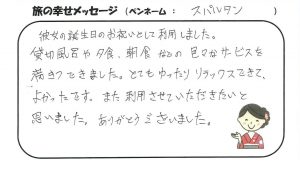 旅の幸せメッセージ (ペンネーム : スパルタン )
彼女の誕生日のお祝いとして利用しました。
貸切風呂や夕食、朝食などの色々なサービスを
満きつできました。とてもゆったりリラックスできて、
よかったです。また利用させていただきたいと
思いました。ありがとうございました。